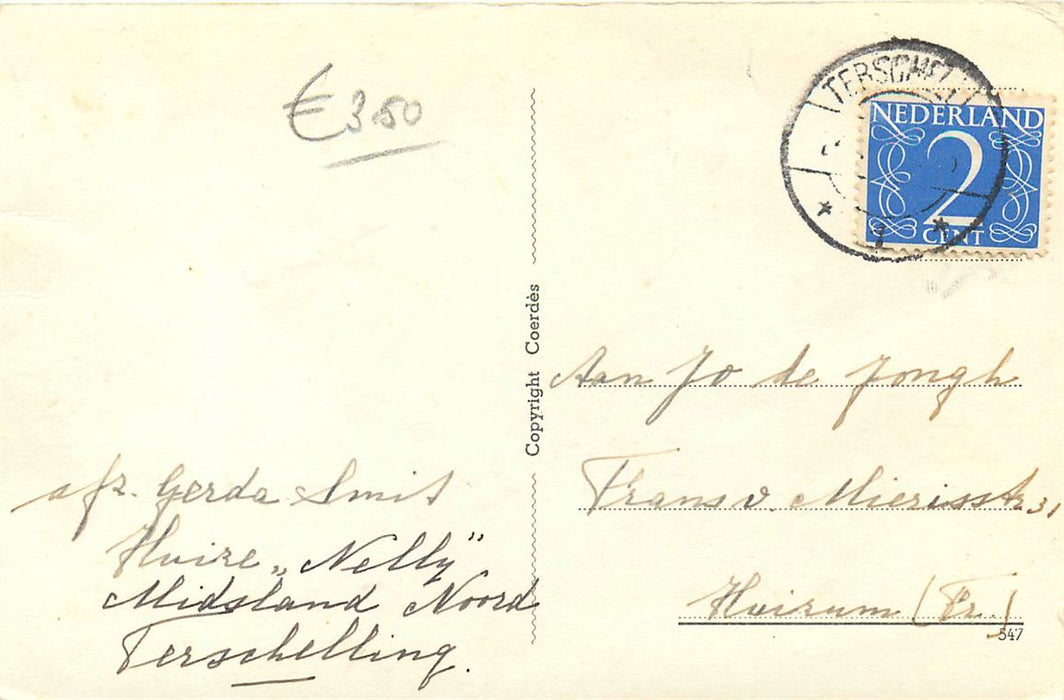 € 3.50
TERSCHELL
NEDERLAND
2
CENT
1
Copyright Coerdès
Aan Jo de Jongh
Frans v. Mierisstr. 31
Huizum (Fr.)
547
afz. Gerda Smit
Huize „Nelly”
Midsland Noord
Terschelling.